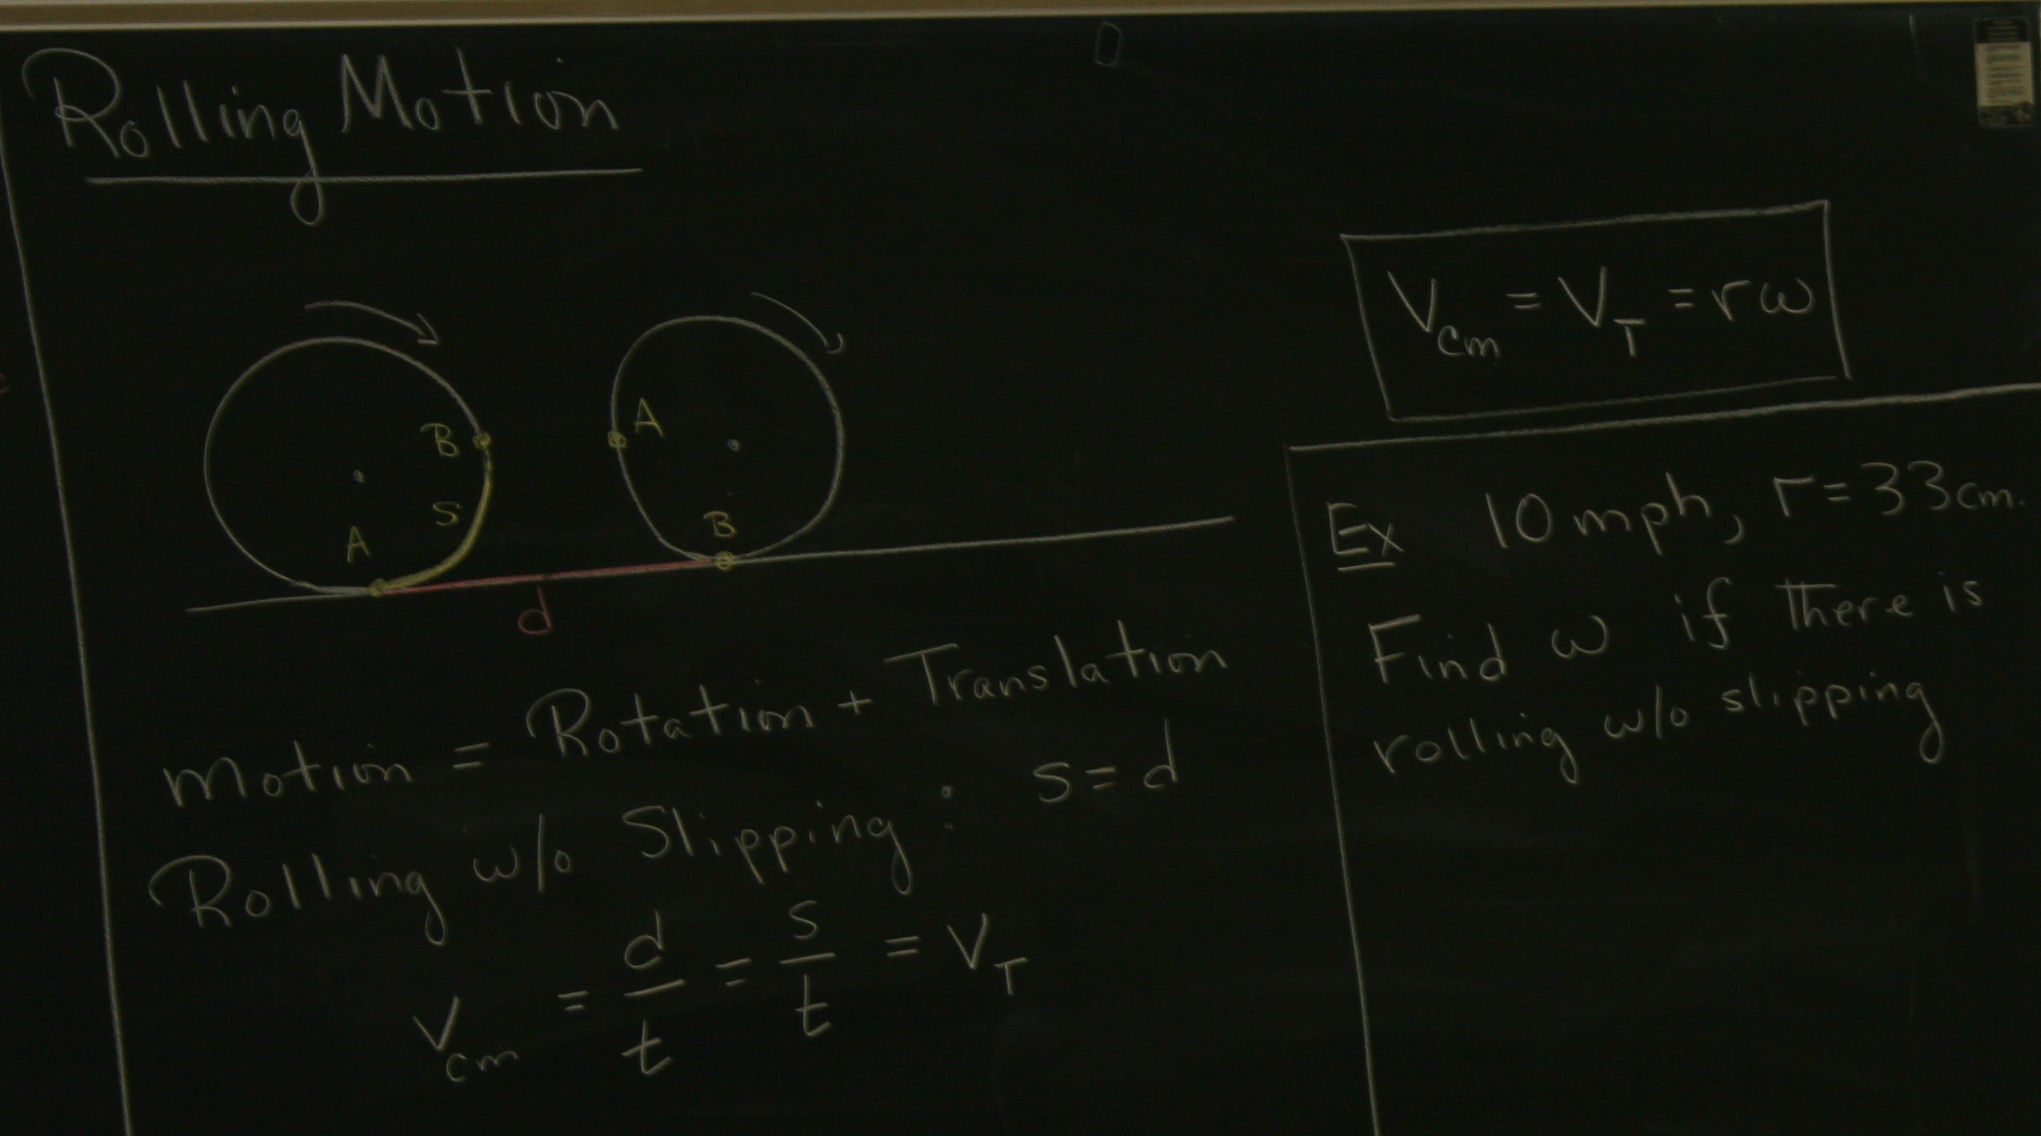 Rolling Motion
B
S
A
A
B
d
Motion = Rotation + Translation
Rolling w/o Slipping : s = d
V_cm = d/t = s/t = V_T
V_cm = V_T = rω
Ex 10 mph, r = 33 cm.
Find ω if there is
rolling w/o slipping